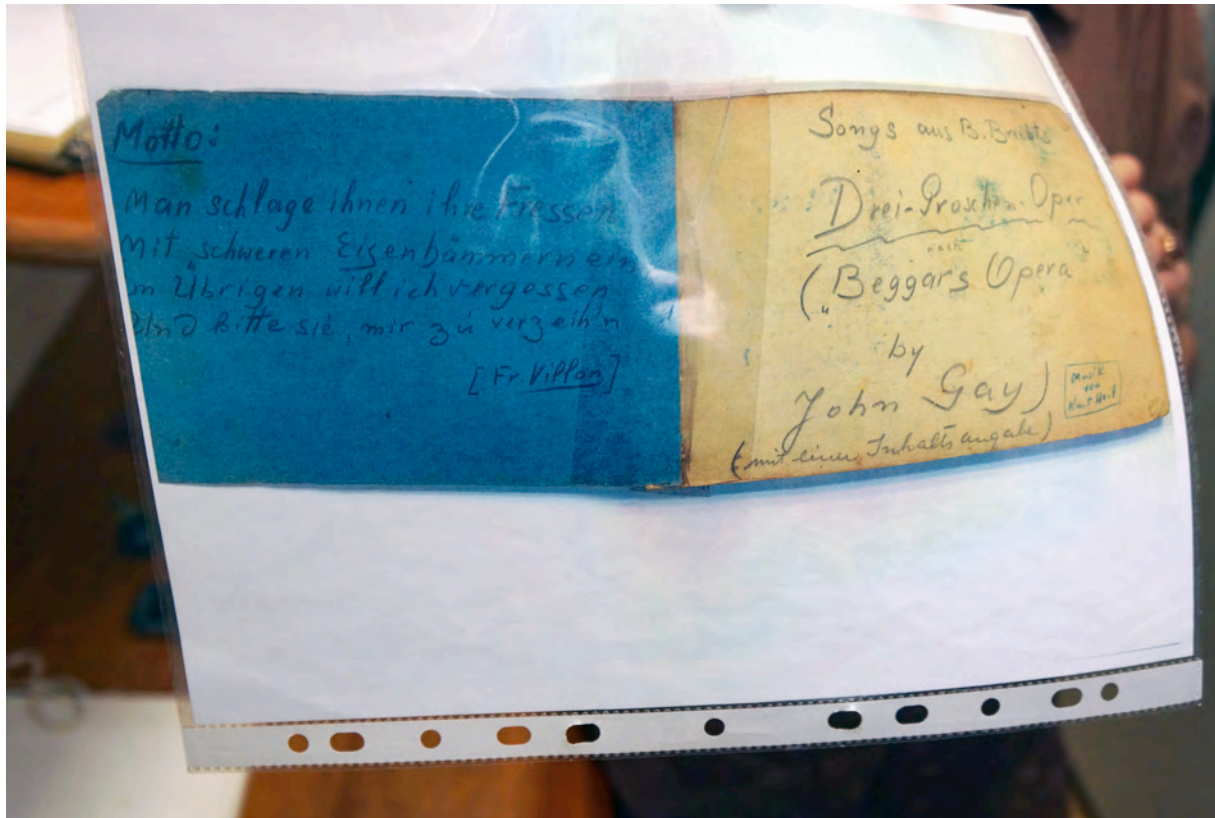 Motto:
Man schlage ihnen ihre Fressen
Mit schweren Eisenhämmern ein
Im Übrigen will ich vergessen
Und bitte sie, mir zu verzeih'n
[Fr. Villon]
Songs aus B. Brechts
Drei-Groschen-Oper
nach
("Beggars Opera"
by
John Gay)
(mit einer Inhaltsangabe)
Musik
von
Kurt Weil